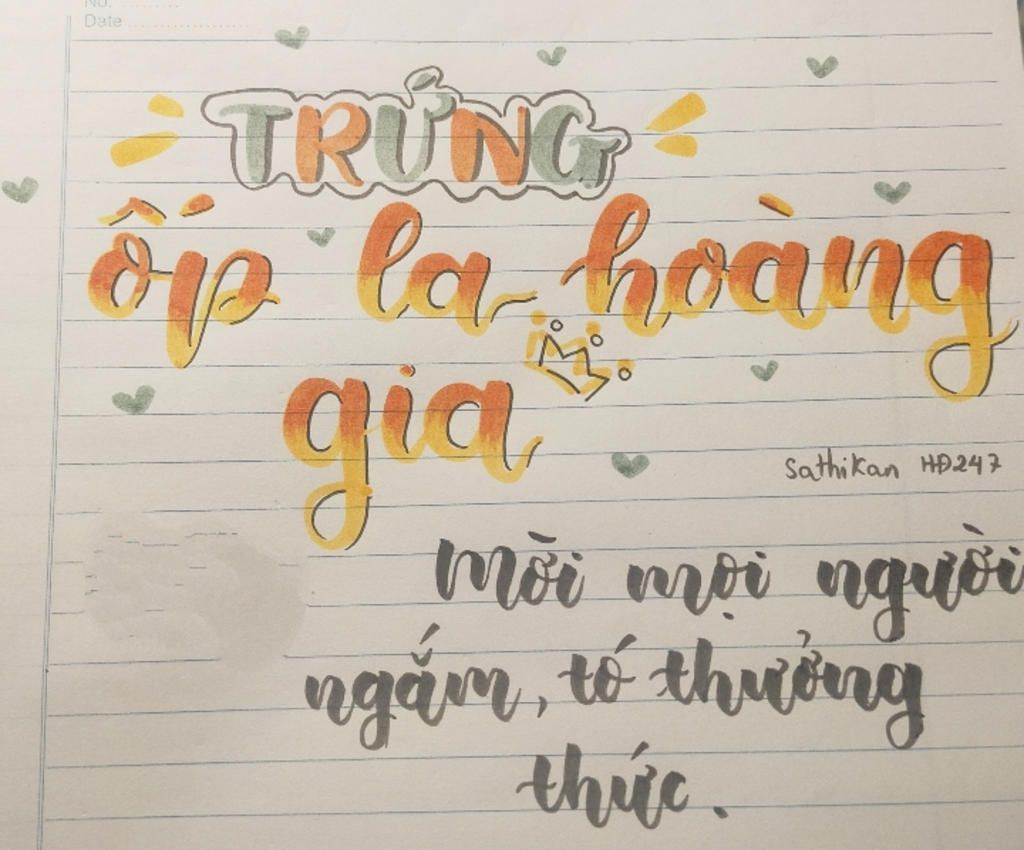 No. ..........
Date .....................
TRỨNG
ốp la hoàng
gia
Sathikan HĐ247
Mời mọi người
ngắm, tó thưởng
thức.